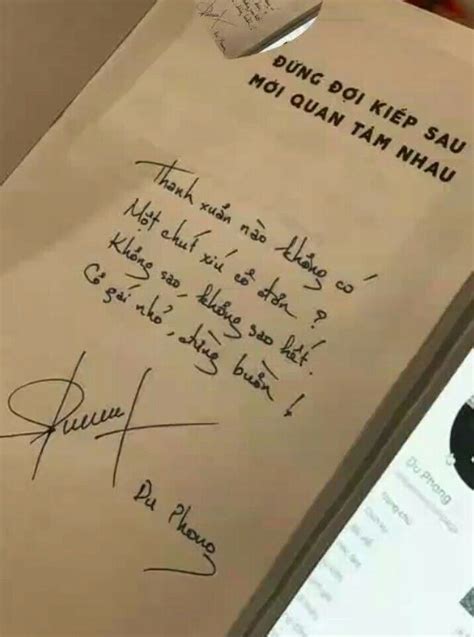 ĐỪNG ĐỢI KIẾP SAU
MỚI QUAN TÂM NHAU
Thanh xuân nào không có
Một chút xíu cô đơn ?
Không sao, không sao hết.
Cô gái nhỏ, đừng buồn !
Du Phong
Du Phong